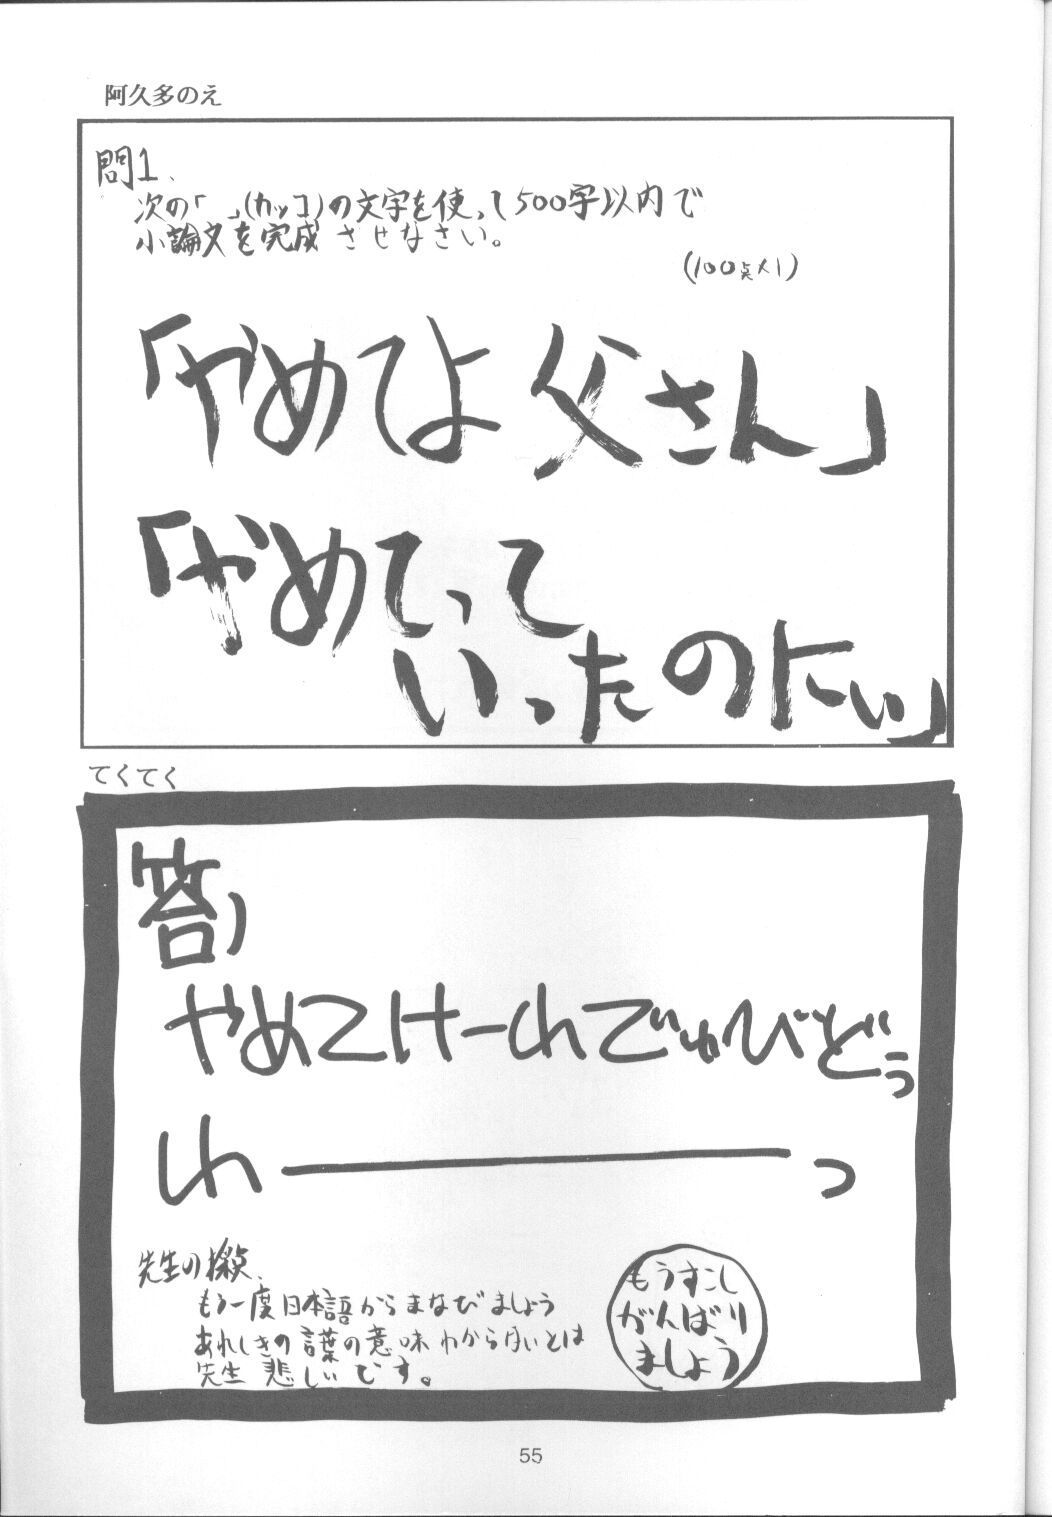 阿久多のえ
問1、
次の「 」(カッコ)の文字を使って500字以内で
小論文を完成させなさい。
(100点×1)
「やめてよ父さん」
「やめてって
いったのにぃ」
てくてく
答)
やめてけーれでゅびどぅ
れ――――っ
先生の採点、
もう一度日本語からまなびましょう
あれしきの言葉の意味わからないとは
先生悲しいです。
もうすこし
がんばり
ましょう
55